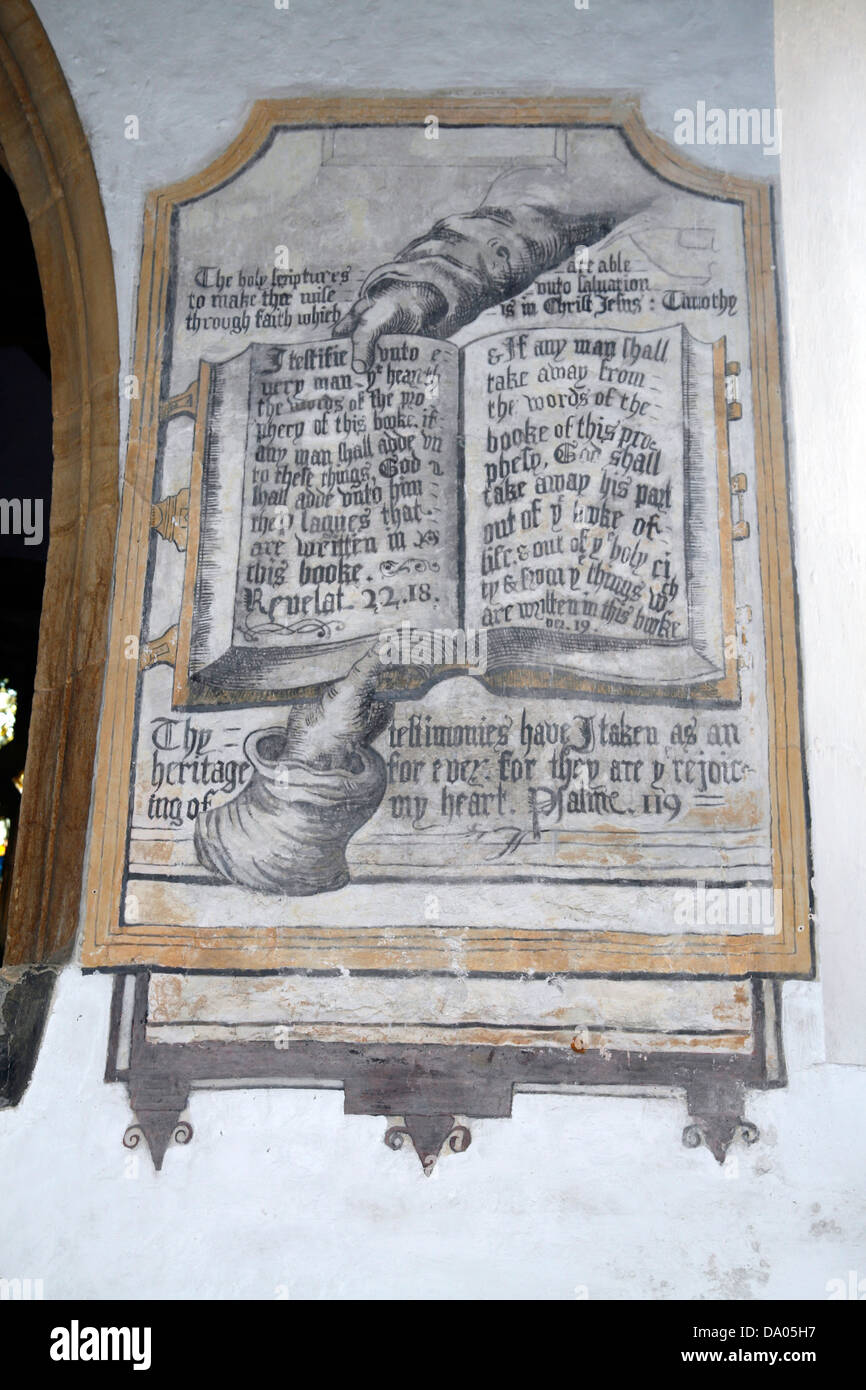 The holy scriptures
to make thee wise
through faith which
are able
vnto saluation
is in Christ Jesus : Timothy
I testifie vnto e
very man yt heareth
the words of the pro
phecy of this booke, if
any man shall adde vn
to these things, God
shall adde vnto him
the plagues that
are written in
this booke.
Revelat. 22.18.
& If any man shall
take away from
the words of the
booke of this pro
phesy, God shall
take away his part
out of ye booke of
life, & out of ye holy ci
ty & from ye things wch
are written in this booke
ver. 19.
Thy testimonies have I taken as an
heritage for ever: for they are ye rejoic-
ing of my heart. Psalme. 119
alamy
alamy
a
a
a
a
a
a
alamy
Image ID: DA05H7
www.alamy.com